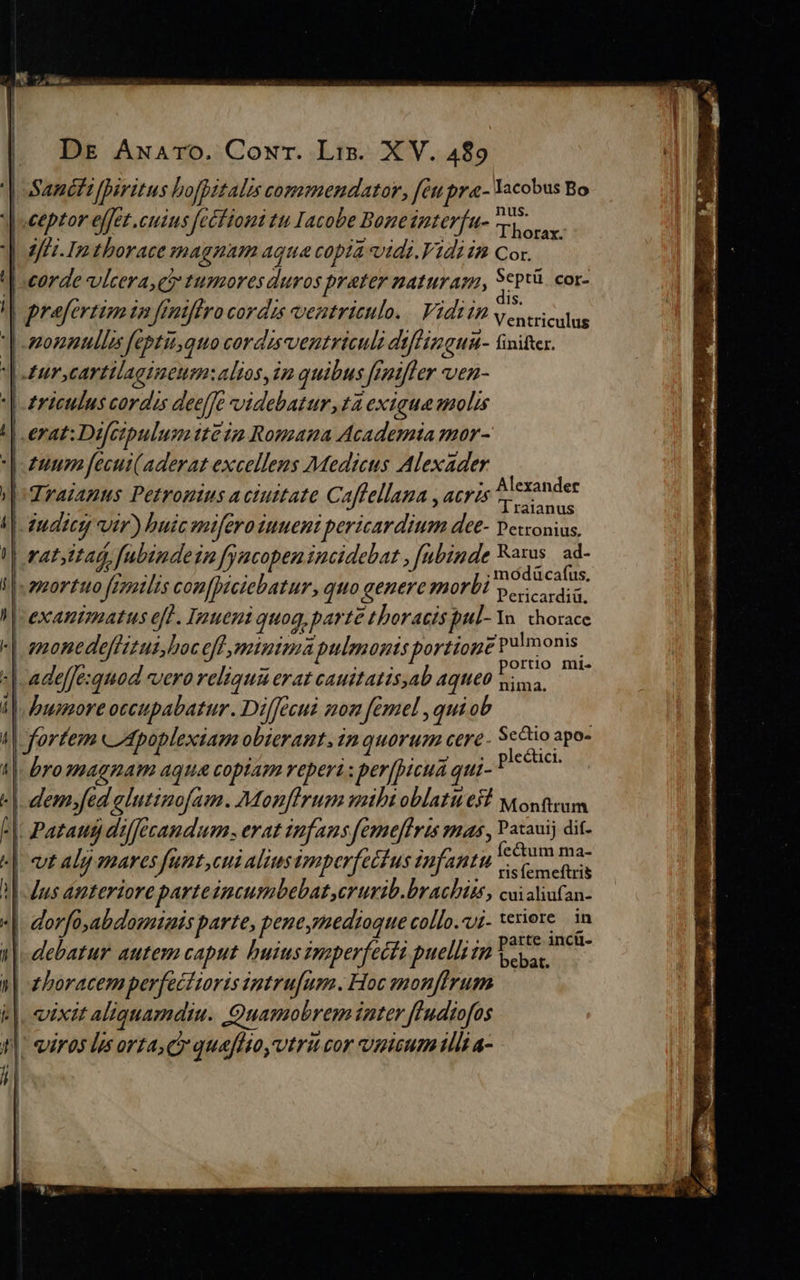 DE ANATO. CONT. LIB. XV. 489
Sancti ſpiritus hoſpitalis commendator, ſeu præ-
ceptor eſſet. cuius ſectioni tu Iacobe Bone interfu-
iſti. In thorace magnam aquæ copiā vidi. Vidi in
corde vlcera, & tumores duros præter naturam,
præſertim in ſiniſtro cordis ventriculo. Vidi in
nonnullis ſeptū, quo cordis ventriculi diſtinguū-
tur, cartilagineum: alios, in quibus ſiniſter ven-
triculus cordis deeſſe videbatur, tā exiguæ molis
erat: Diſcipulum itē in Romana Academia mor-
tuum ſecui (aderat excellens Medicus Alexāder
Traianus Petronius a ciuitate Caſtellana, acris
iudicij vir) huic miſero iuueni pericardium dee-
rat, itaq; ſubinde in ſyncopen incidebat, ſubinde
mortuo ſimilis conſpiciebatur, quo genere morbi
exanimatus eſt. Inueni quoq, parte thoracis pul-
mone deſtitui, hoc eſt, minimā pulmonis portionē
adeſſe: quod vero reliquū erat cauitatis, ab aqueo
humore occupabatur. Diſſecui non ſemel, qui ob
fortem Apoplexiam obierant, in quorum cere-
bro magnam aquæ copiam reperi: perſpicuā qui-
dem, ſed glutinoſam. Monſtrum mihi oblatū est
Patauij diſſecandum. erat infans ſemeſtris mas,
vt alij mares ſunt, cui alius imperfectus infantu
lus anteriore parte incumbebat, crurib. brachiis,
dorſo, abdominis parte, pene, medioque collo. vi-
debatur autem caput huius imperfecti puelli in
thoracem perfectioris intruſum. Hoc monſtrum
vixit aliquamdiu. Quamobrem inter ſtudioſos
viros lis orta, & quæſtio, vtrū cor vnicum illi a-
Iacobus Bo
nus.
Thorax.
Cor.
Septū cor-
dis.
Ventriculus
ſiniſter.
Alexander
Traianus
Petronius.
Rarus ad-
modū caſus,
Pericardiū.
In thorace
pulmonis
portio mi-
nima.
Sectio apo-
plectici.
Monſtrum
Patauij diſ-
ſectum ma-
ris ſemeſtris
cui alius an-
teriore in
parte incū-
bebat.